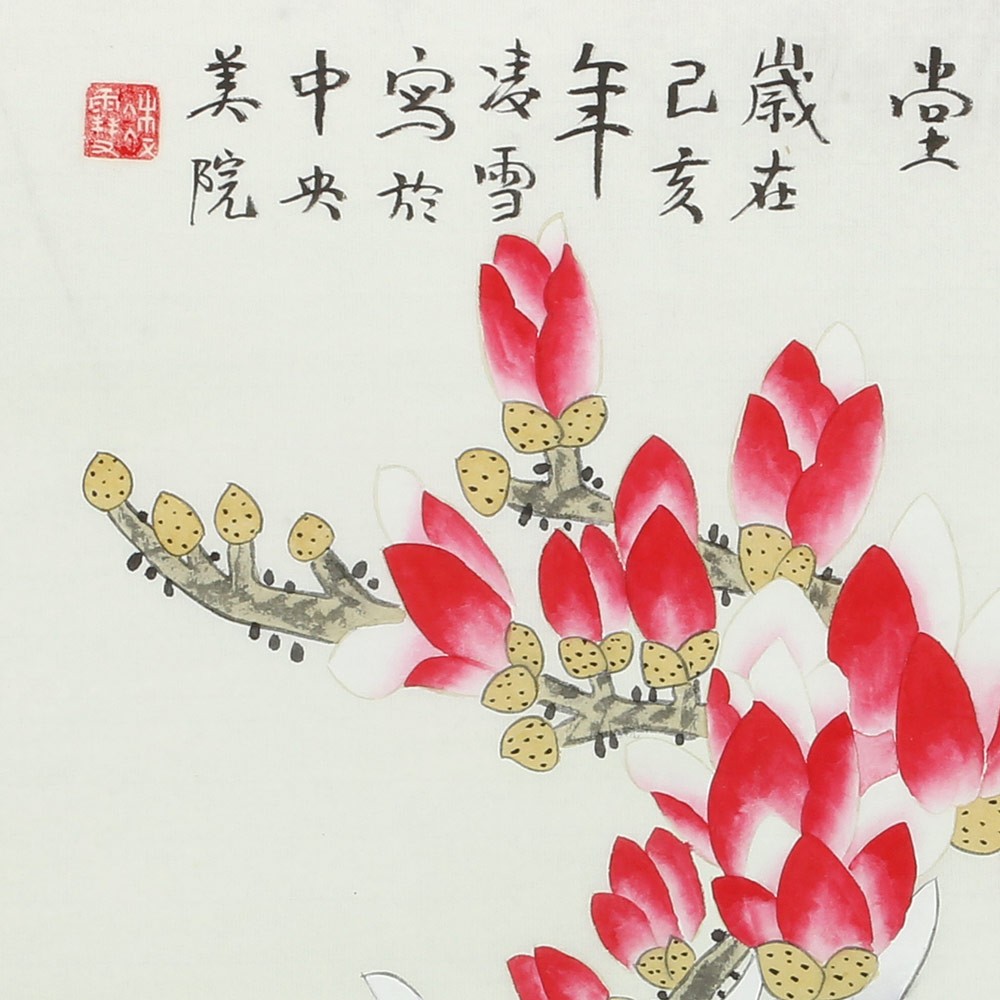 堂
歲在
己亥
年
凌雪
写於
中央
美院